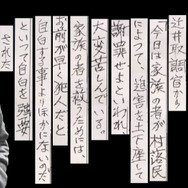 辻井取調官から
「今日は家族の者が村落民
によって、迫害を土下座して
謝罪せよといわれ
大変苦しんでいる。
家族の者を救うためには、
お前が早く犯人だと
自白する事よりほかにないのだ」
といって自白を強要
された